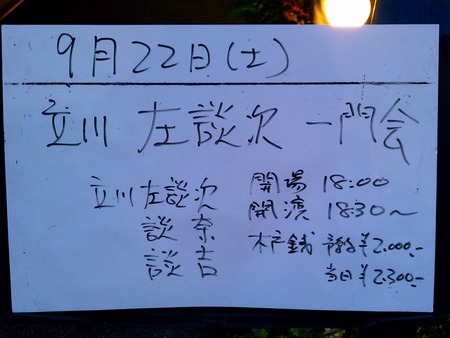 9月22日(土)
立川 左談次 一門会
立川左談次
談奈
談吉
開場 18:00
開演 18:30～
木戸銭 予約¥2,000,-
当日¥2,300,-